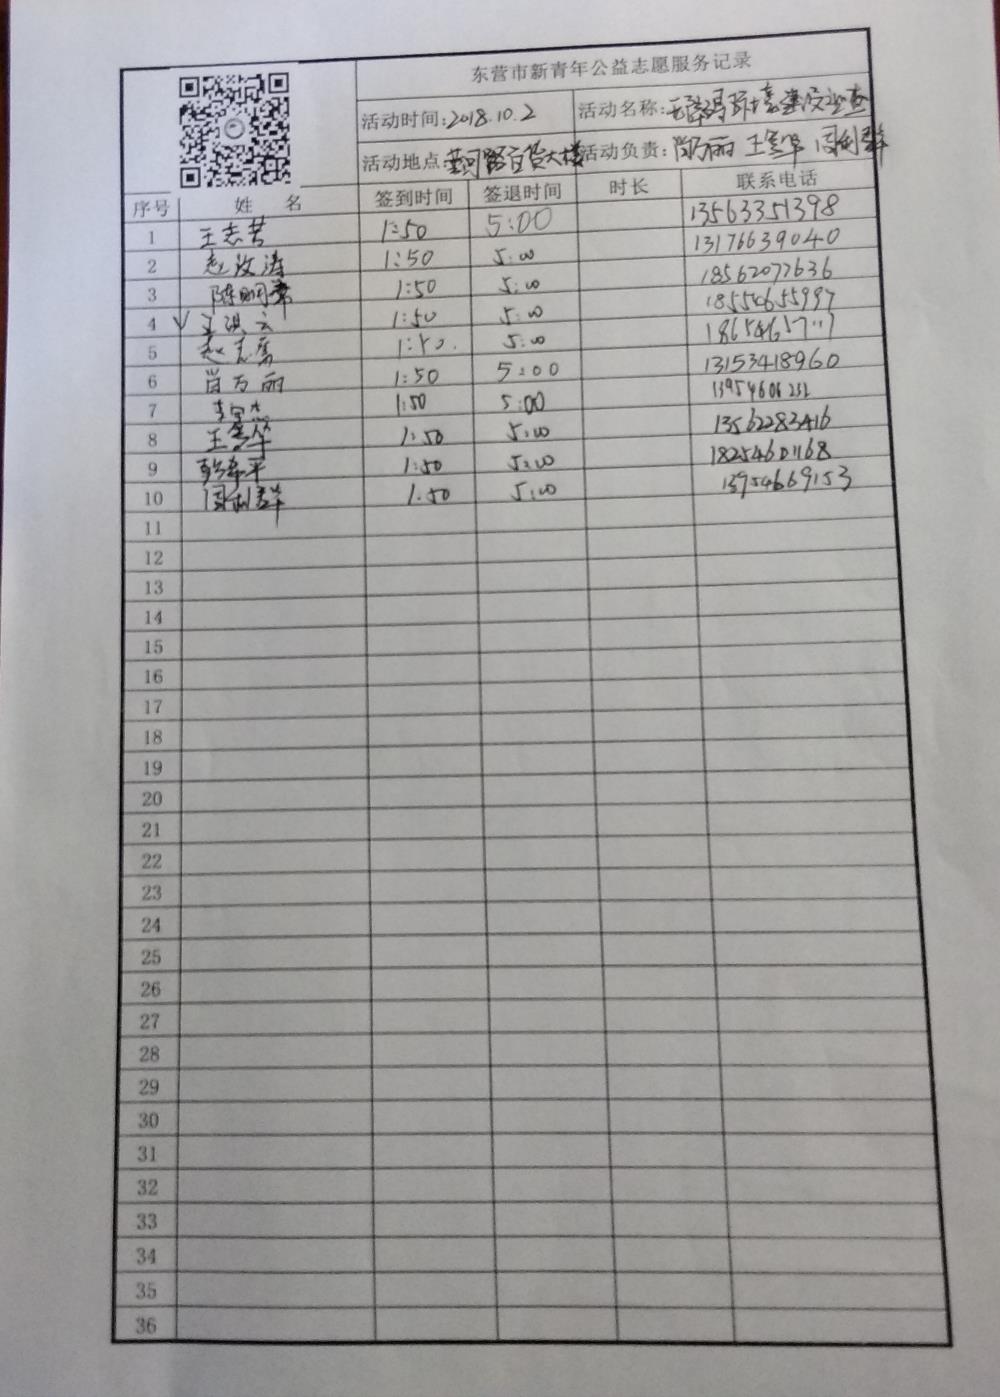 东营市新青年公益志愿服务记录
活动时间:2018.10.2 活动名称:无障碍环境建设巡查
活动地点:黄河路百货大楼 活动负责: 肖万丽 王雪华 周利群
序号 姓 名 签到时间 签退时间 时长 联系电话
1 王志芳 1:50 5:00 13563351398
2 赵汝涛 1:50 5:00 13176639040
3 陈明常 1:50 5:00 18562077636
4 王洪云 1:50 5:00 18554655997
5 赵志 1:50. 5:00
6 肖万丽 1:50 5:00 13153418960
7 1:50 5:00 13954606232
8 王雪华 1:50 5:00 13562283416
9 1:50 5:00 18254601168
10 周利群 1:50 5:00 13954669153
11
12
13
14
15
16
17
18
19
20
21
22
23
24
25
26
27
28
29
30
31
32
33
34
35
36